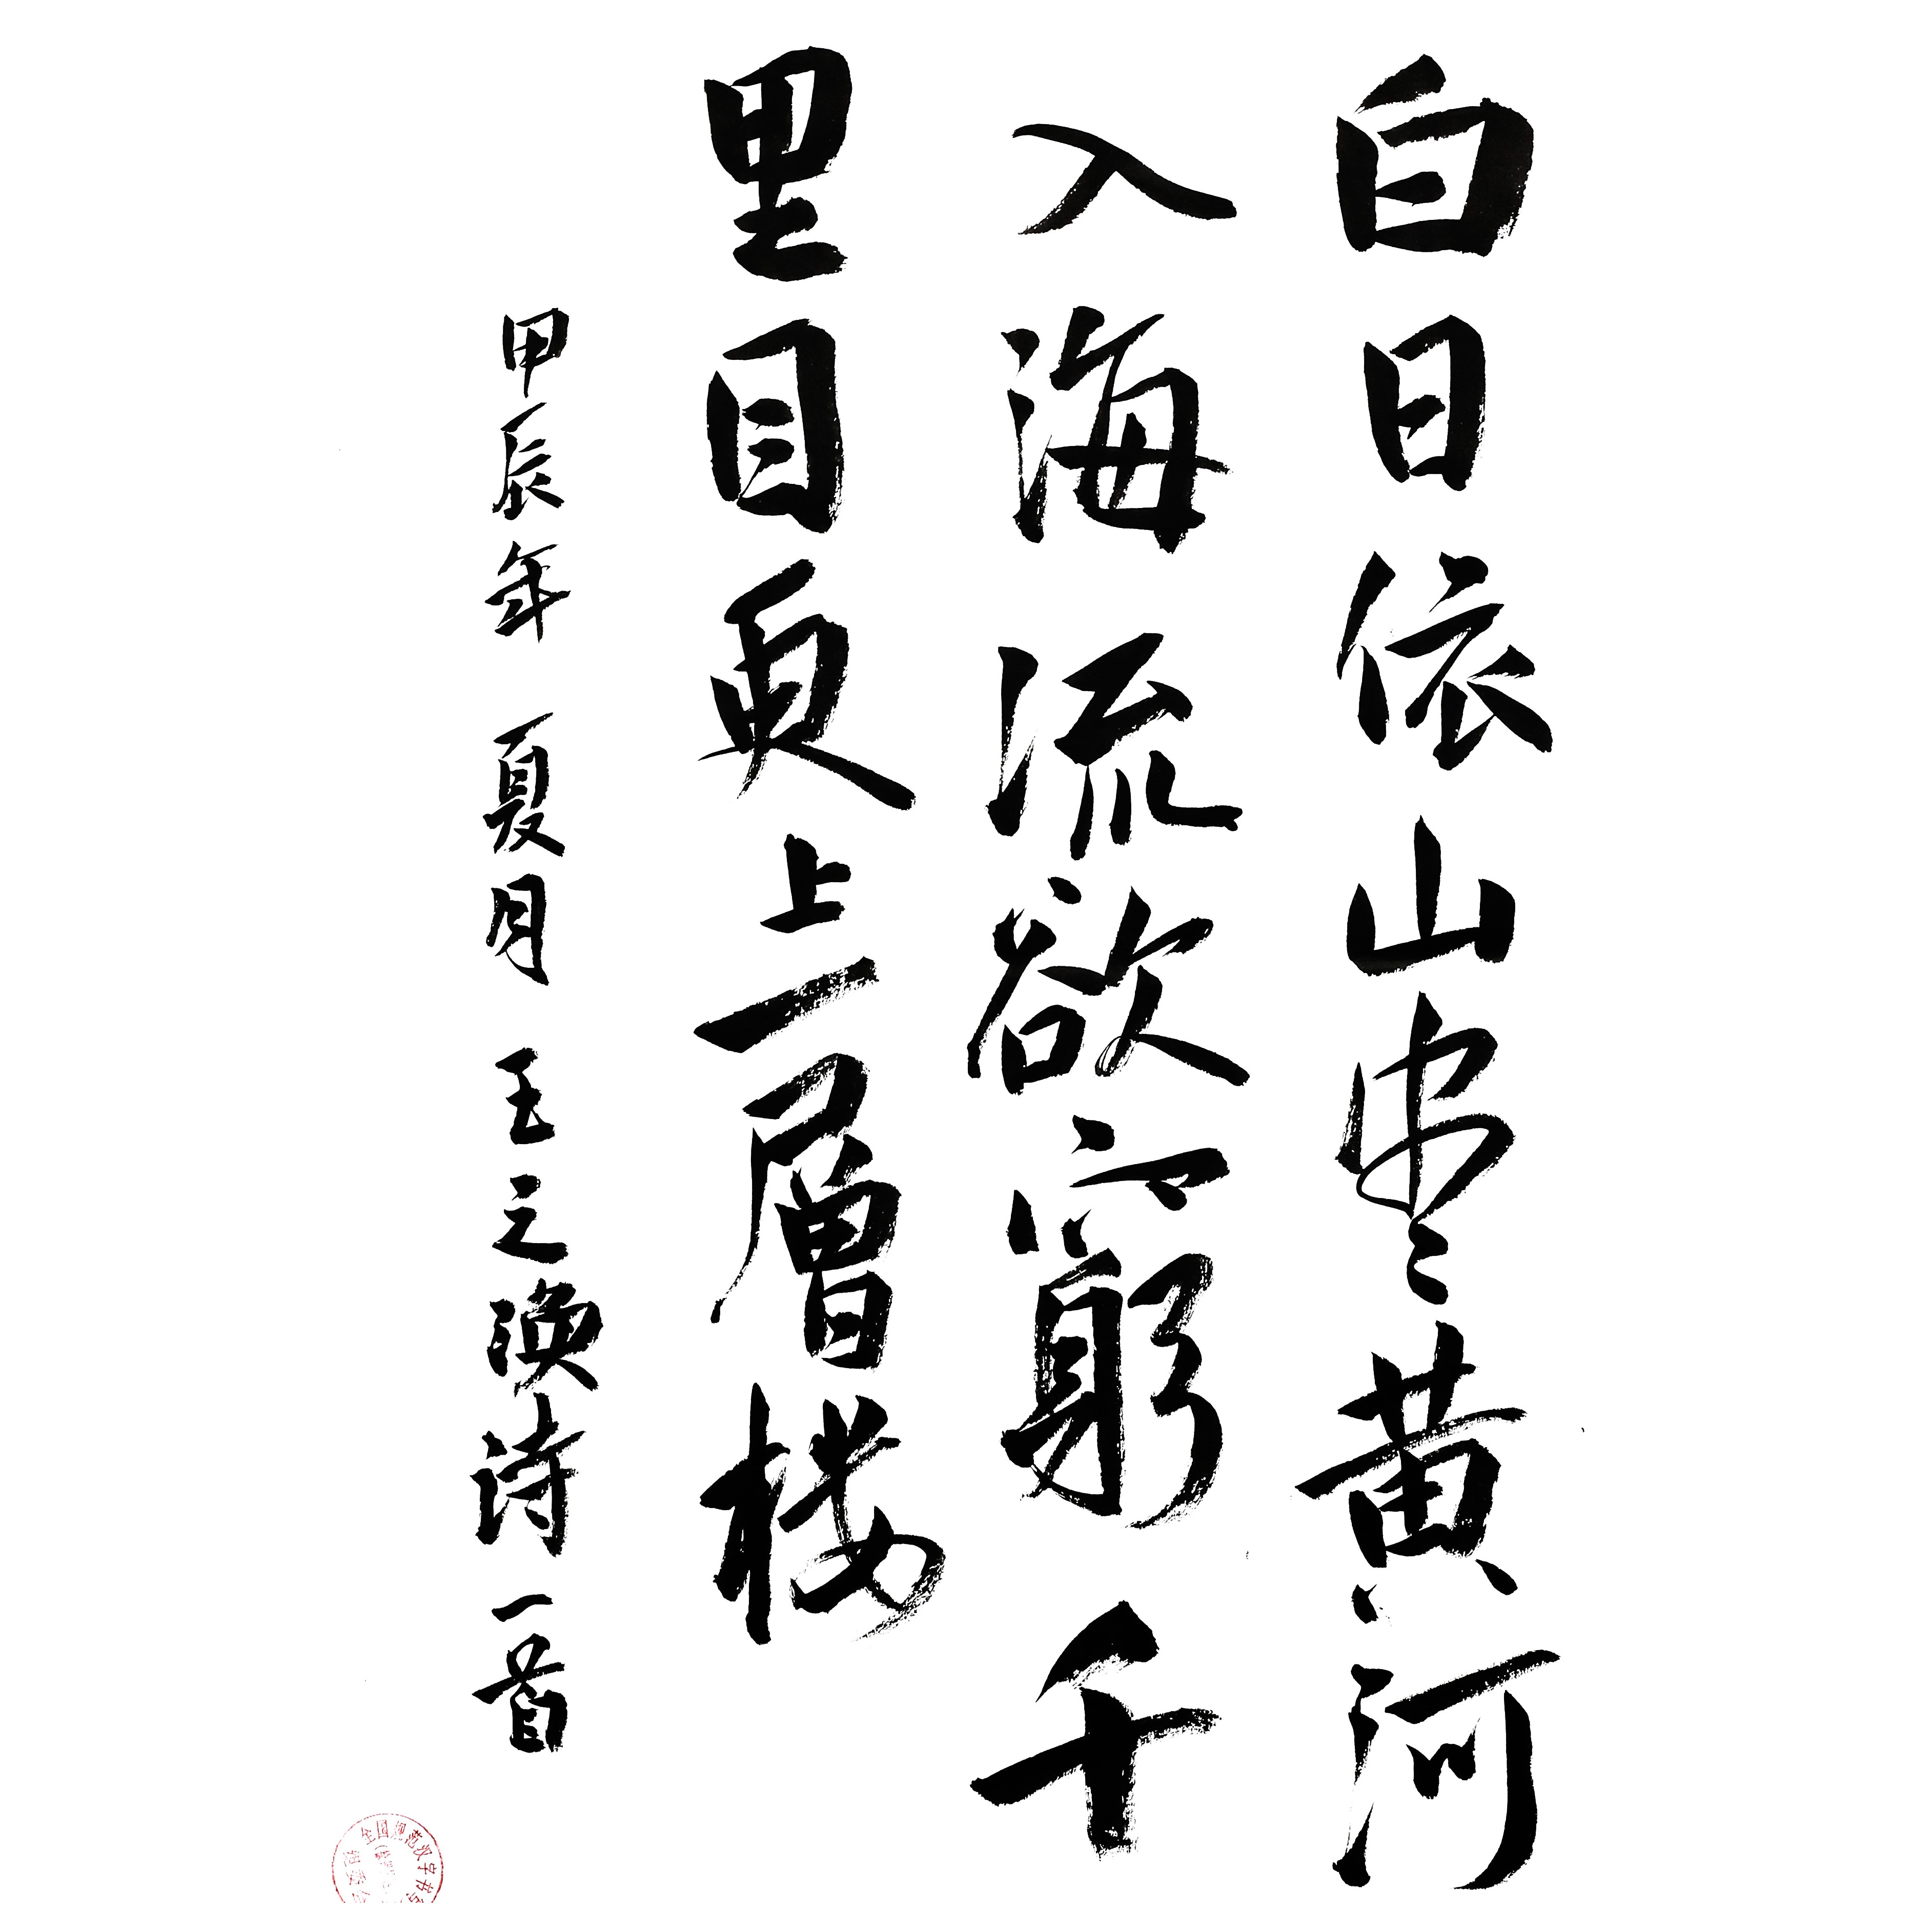 白日依山尽黄河
入海流欲窮千
里目更上一層楼
甲辰年 夏月 王之涣诗一首
全国规范汉字书